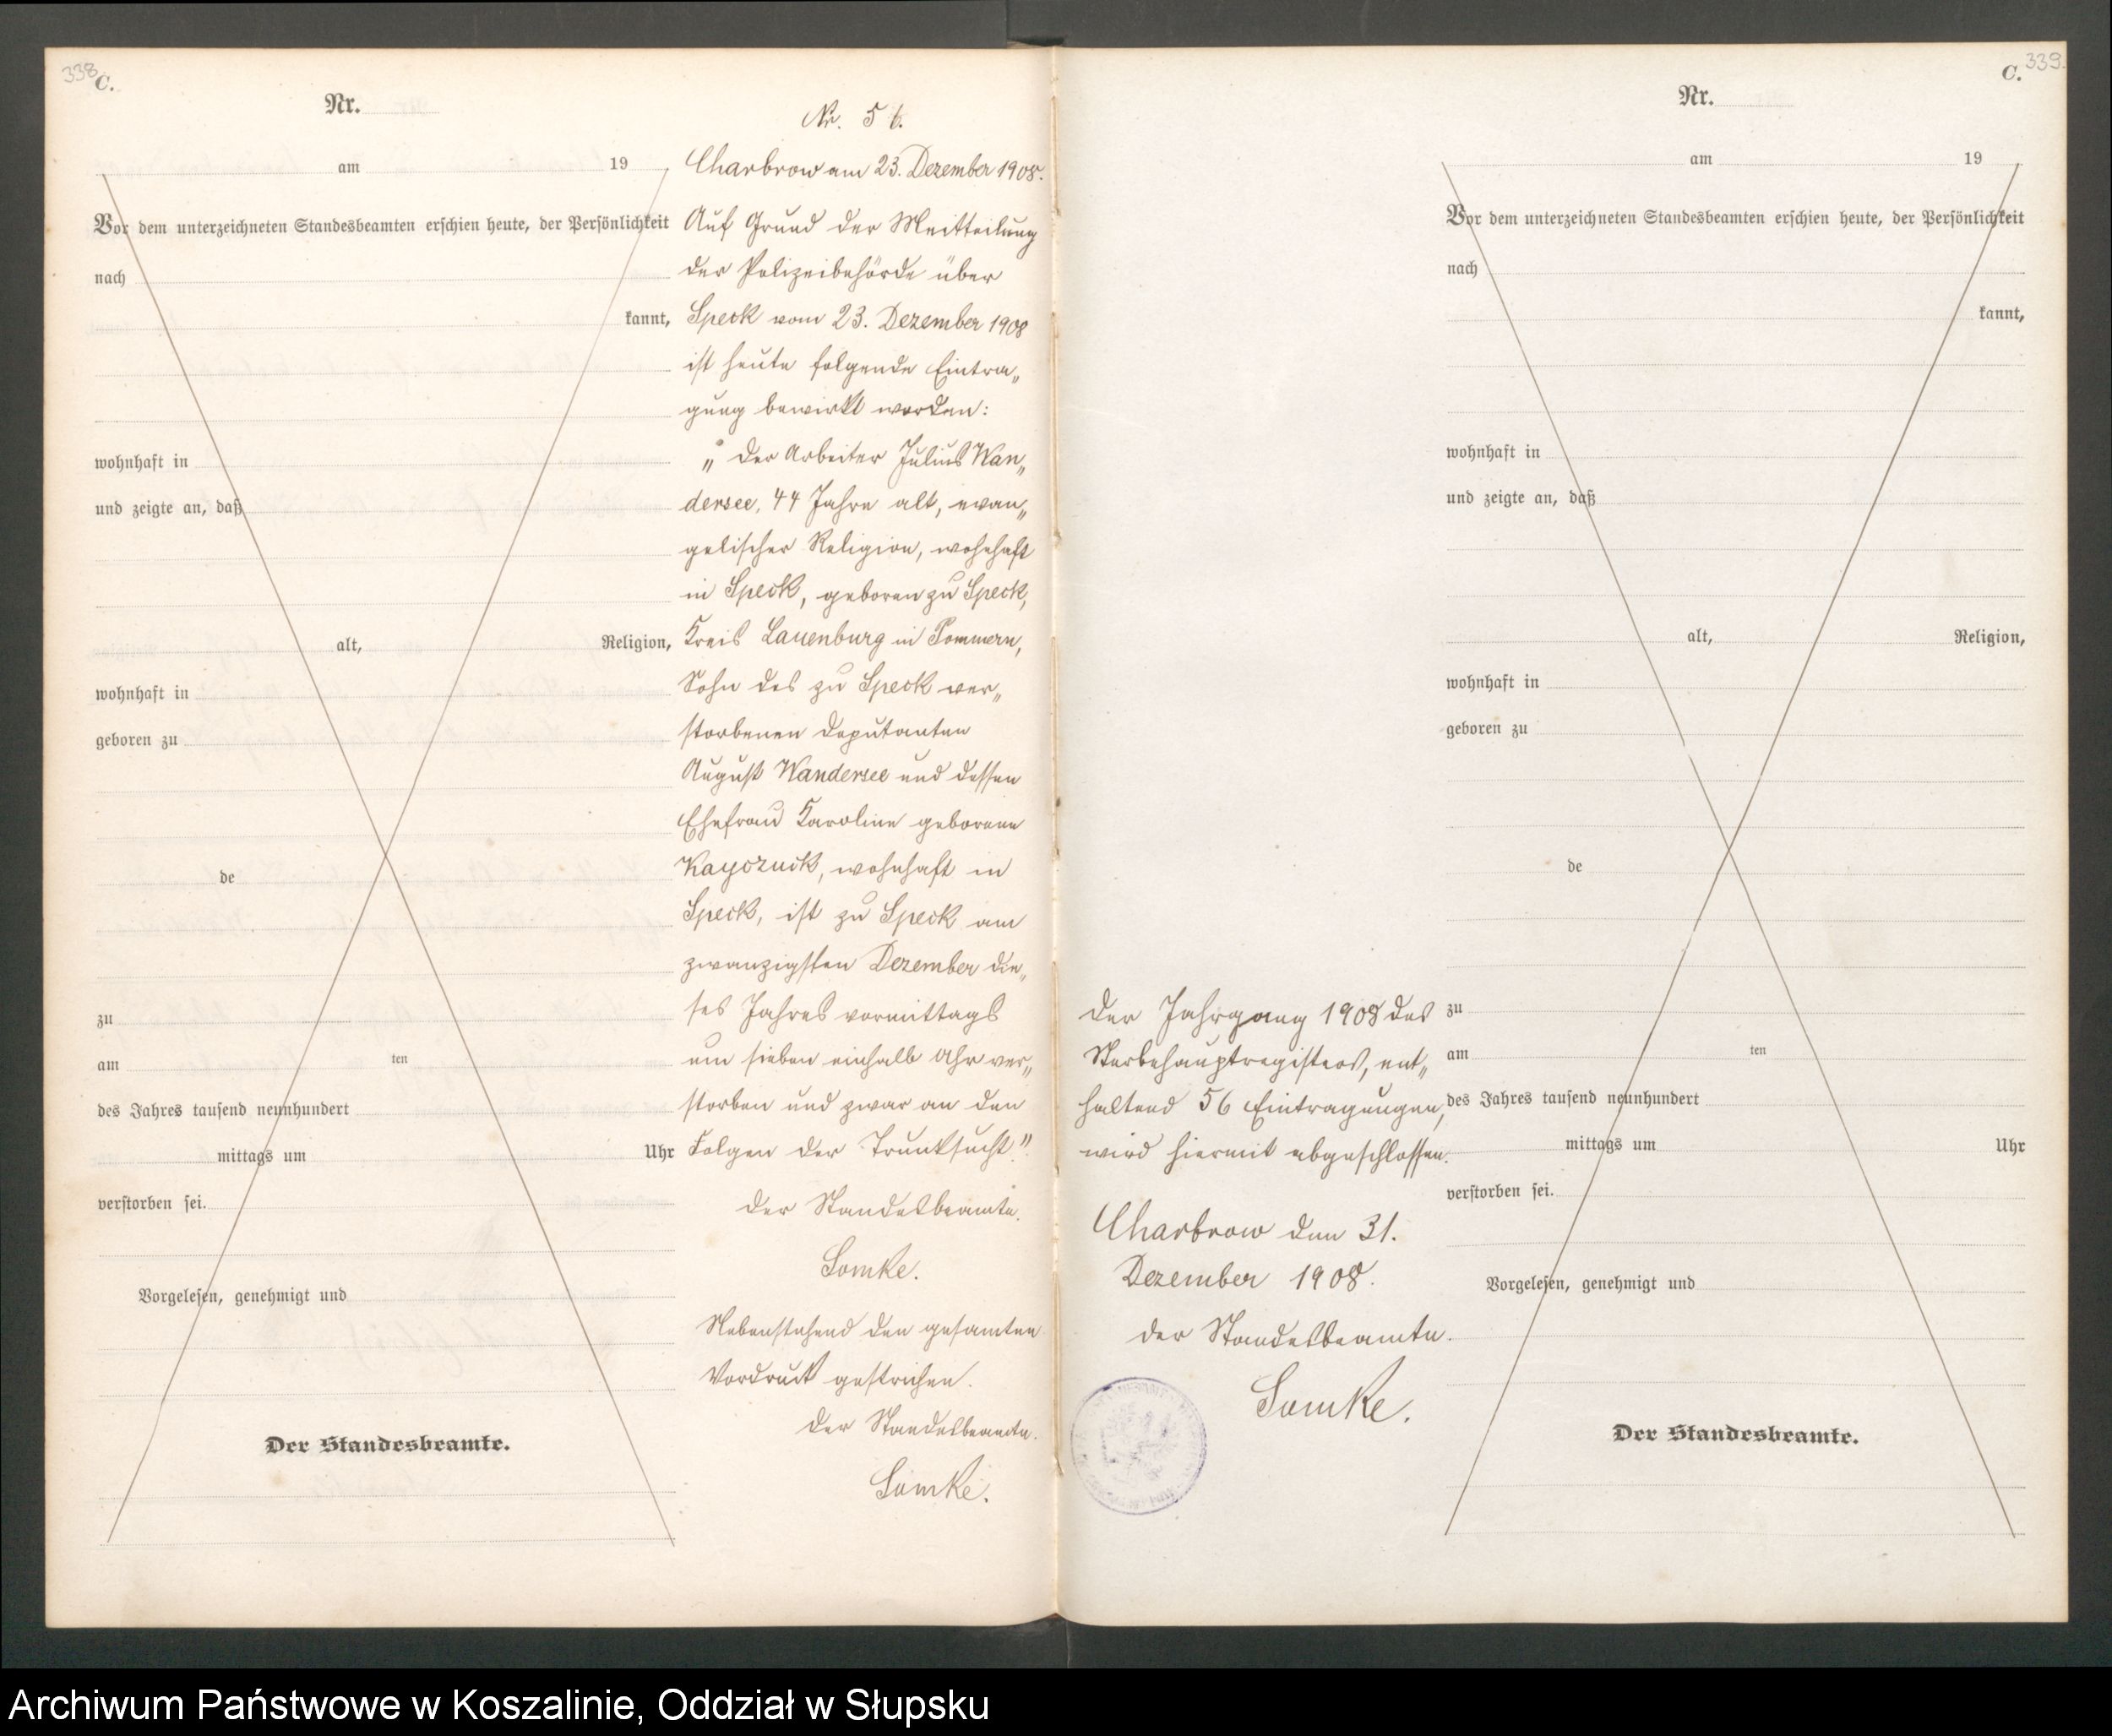 338
C.
Nr.
am 19
Vor dem unterzeichneten Standesbeamten erschien heute, der Persönlichkeit
nach
kannt,
wohnhaft in
und zeigte an, daß
alt, Religion,
wohnhaft in
geboren zu
de
zu
am ten
des Jahres tausend neunhundert
mittags um Uhr
verstorben sei.
Vorgelesen, genehmigt und
Der Standesbeamte.
Nr. 56.
Charbrow am 23. Dezember 1908.
Auf Grund der Mitteilung
der Polizeibehörde über
Speck vom 23. Dezember 1908
ist heute folgende Eintra„
gung bewirkt worden:
„Der Arbeiter Julius Wan„
dersee, 44 Jahre alt, evan„
gelischer Religion, wohnhaft
in Speck, geboren zu Speck,
Kreis Lauenburg in Pommern,
Sohn des zu Speck ver„
storbenen Deputanten
August Wandersee und dessen
Ehefrau Karoline geborene
wohnhaft in
Speck, ist zu Speck am
zwanzigsten Dezember die„
ses Jahres vormittags
um sieben einhalb Uhr ver„
storben und zwar an den
Folgen der Trunksucht."
Der Standesbeamte.
Lomke.
Nebenstehend den gesamten
Vordruck gestrichen.
Der Standesbeamte.
Lomke.
339.
C.
Der Jahrgang 1908 des
Sterbehauptregisters, ent„
haltend 56 Eintragungen,
wird hiermit abgeschlossen.
Charbrow den 31.
Dezember 1908.
Der Standesbeamte.
Lomke.
Nr.
am 19
Vor dem unterzeichneten Standesbeamten erschien heute, der Persönlichkeit
nach
kannt,
wohnhaft in
und zeigte an, daß
alt, Religion,
wohnhaft in
geboren zu
de
zu
am ten
des Jahres tausend neunhundert
mittags um Uhr
verstorben sei.
Vorgelesen, genehmigt und
Der Standesbeamte.
Archiwum Państwowe w Koszalinie, Oddział w Słupsku